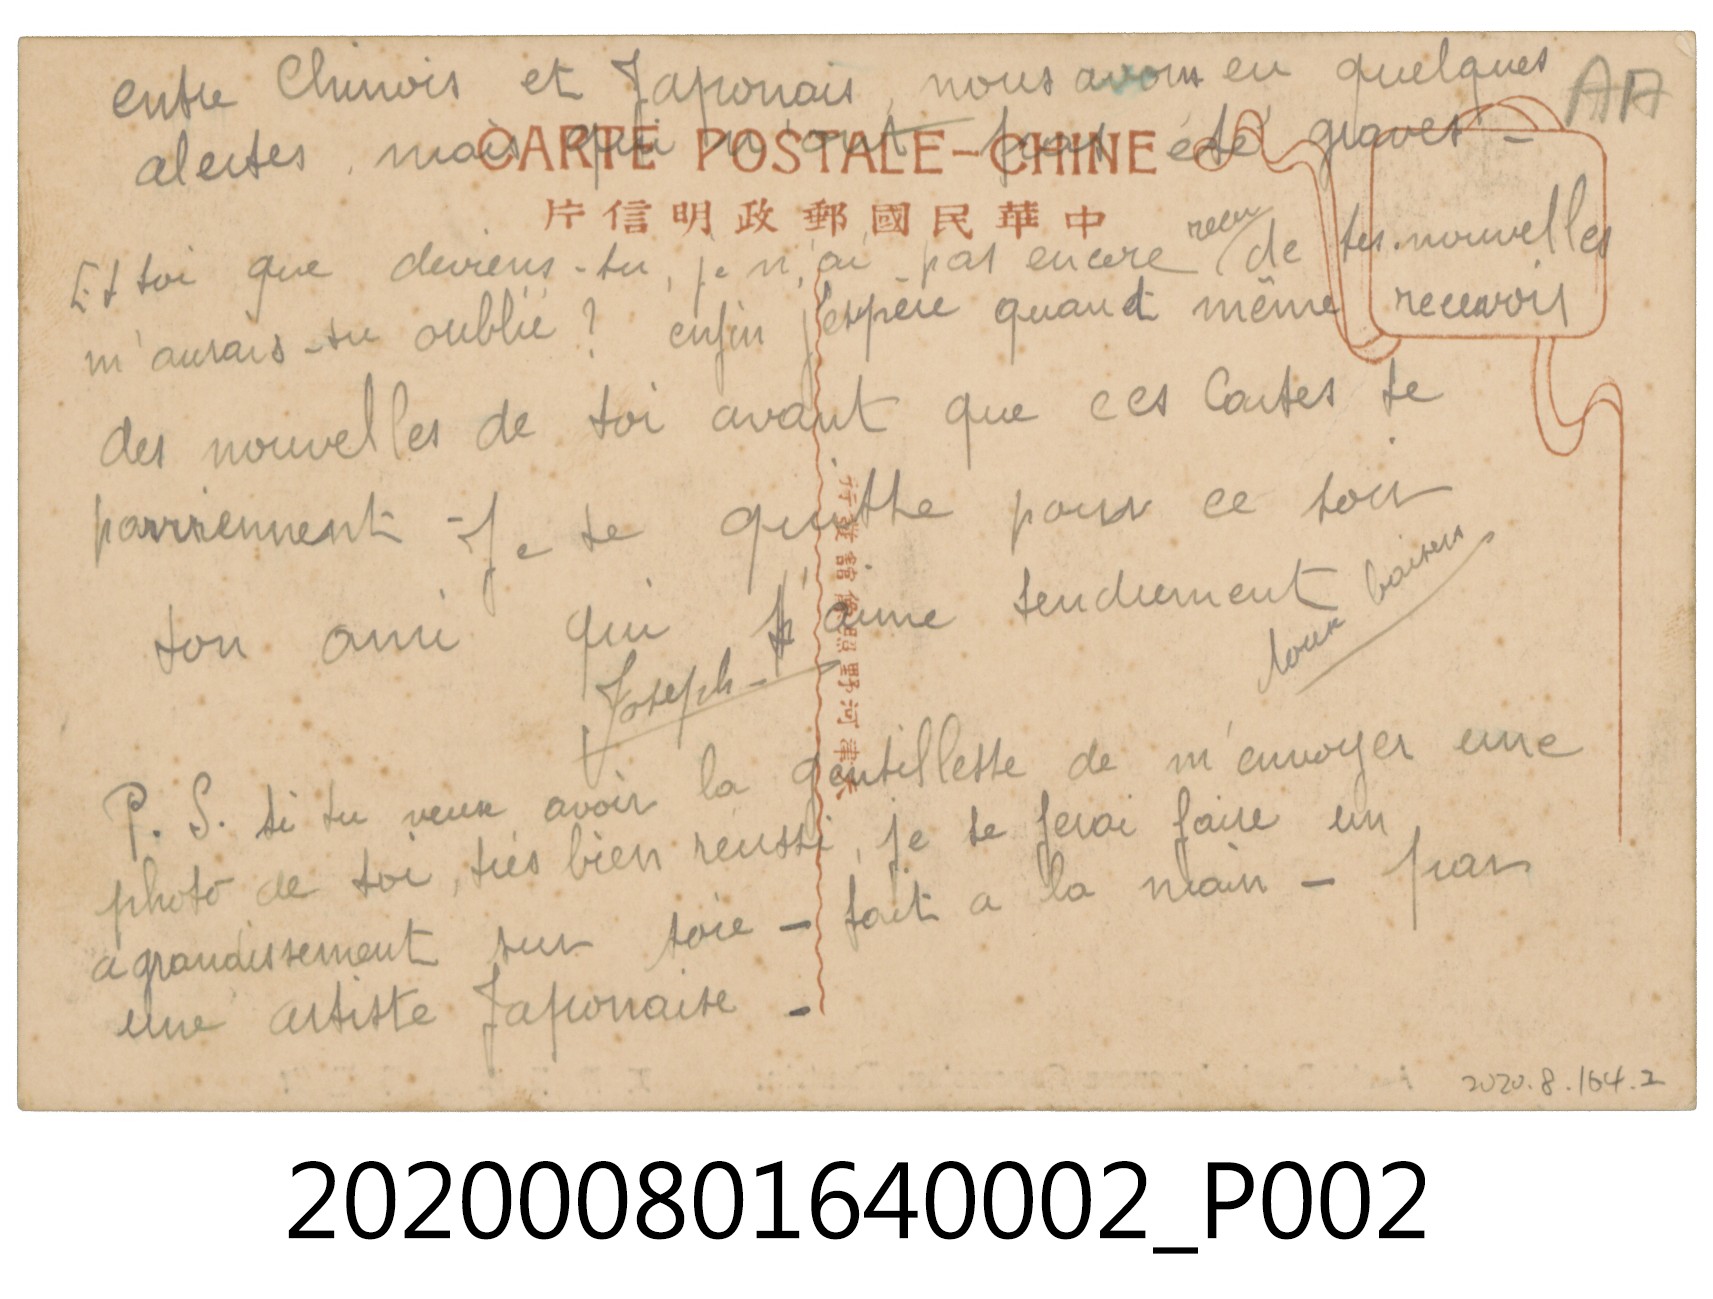 entre Chinois et Japonais, nous avons eu quelques
AA
alertes, mais qui n'ont pas été graves -
CARTE POSTALE-CHINE
片信明政郵國民華中
Et toi que deviens-tu, je n'ai pas encore recu de tes nouvelles
m'aurais-tu oublié ? enfin j'espère quand même recevoir
des nouvelles de toi avant que ces Cartes te
parviennent - Je te quitte pour ce soir
ton ami qui t'aime tendrement
doux baisers
Joseph -
P. S. si tu veux avoir la gentillesse de m'envoyer une
photo de toi, très bien réussi, je te ferai faire un
agrandissement sur soie - fait a la main - par
une artiste Japonaise -
天津河野照像館發行
2020.8.164.2
202000801640002_P002